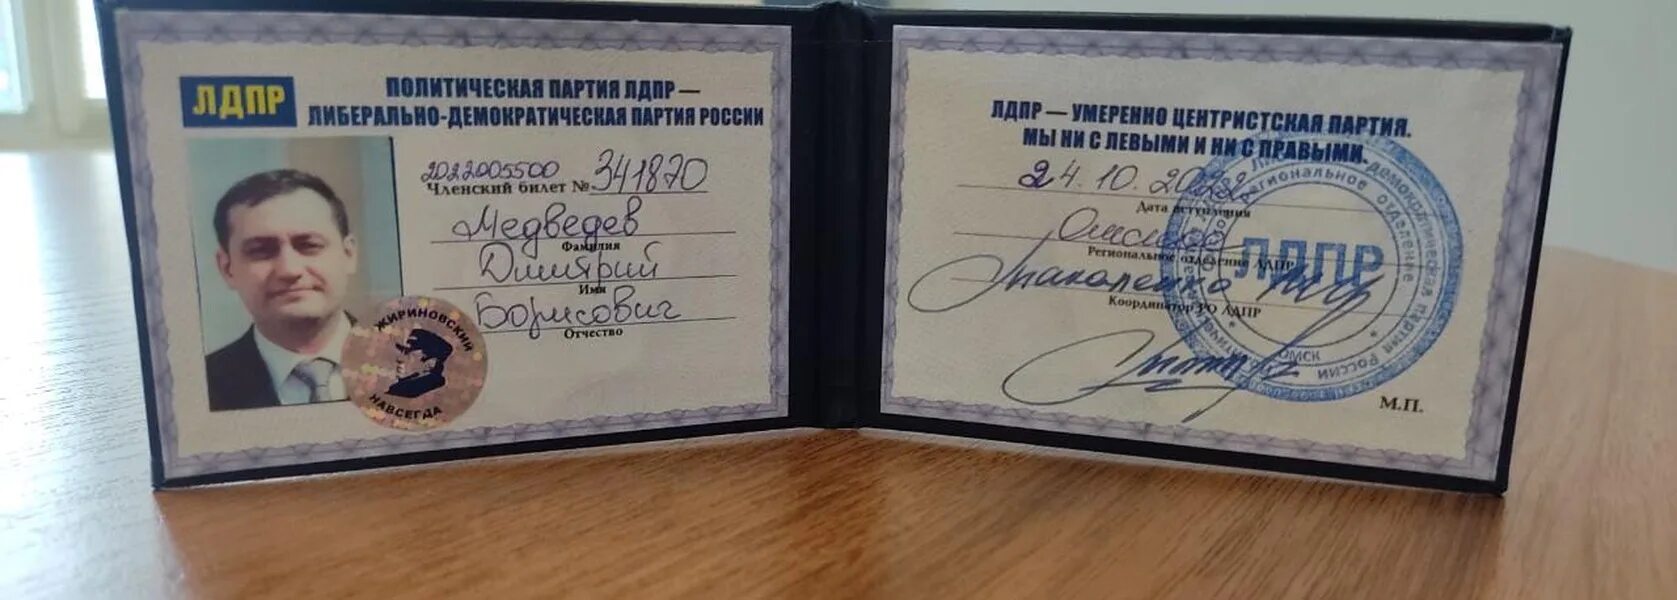 ЛДПР
ПОЛИТИЧЕСКАЯ ПАРТИЯ ЛДПР —
ЛИБЕРАЛЬНО-ДЕМОКРАТИЧЕСКАЯ ПАРТИЯ РОССИИ
2022005500
Членский билет № 341870
Медведев
Фамилия
Дмитрий
Имя
Борисович
Отчество
ЖИРИНОВСКИЙ
НАВСЕГДА
ЛДПР — УМЕРЕННО ЦЕНТРИСТСКАЯ ПАРТИЯ.
МЫ НИ С ЛЕВЫМИ И НИ С ПРАВЫМИ.
24.10.2022
Дата вступления
Омское
Региональное отделение ЛДПР
Координатор РО ЛДПР
М.П.
региональное отделение
ЛДПР
ОМСК
демократическая партия России